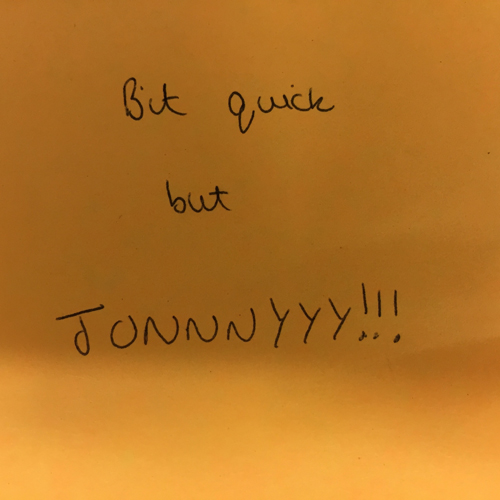 Bit quick
but
JONNNYYY!!!